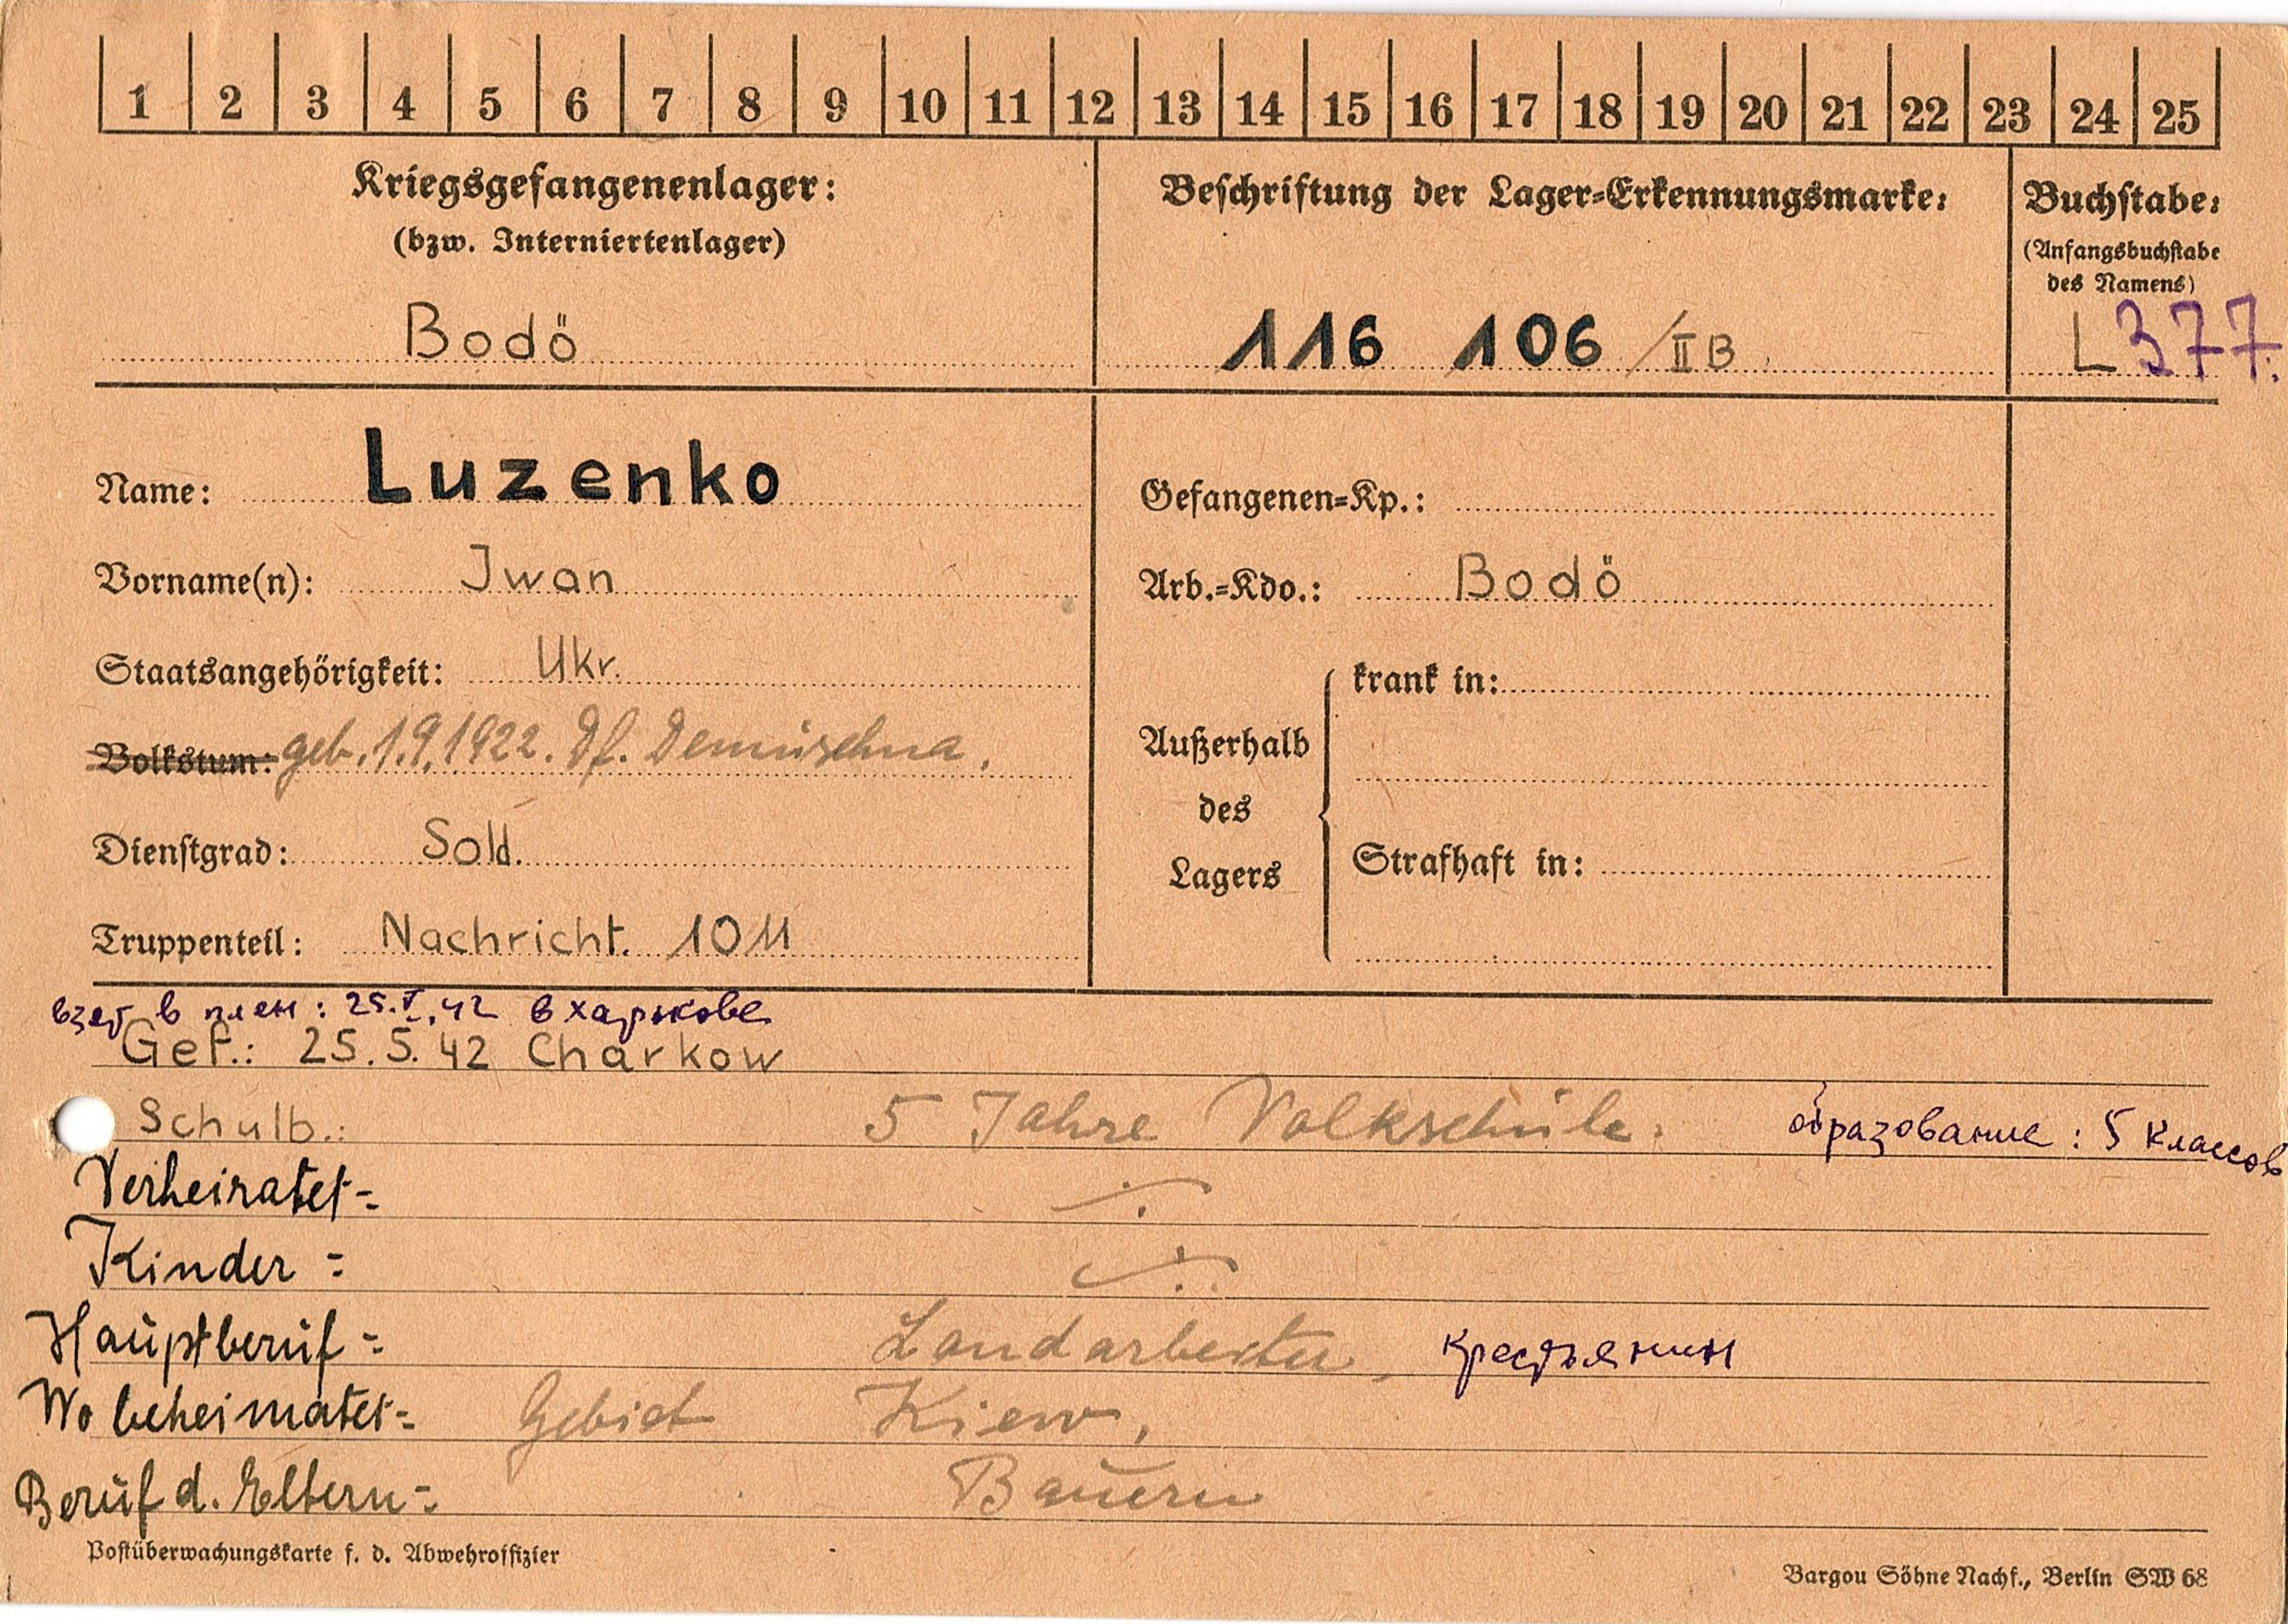 1 2 3 4 5 6 7 8 9 10 11 12 13 14 15 16 17 18 19 20 21 22 23 24 25
Kriegsgefangenenlager:
(bzw. Interniertenlager)
Bodö
Beschriftung der Lager=Erkennungsmarke:
116 106 /II B
Buchstabe:
(Anfangsbuchstabe
des Namens)
L 377.
Name: Luzenko
Vorname(n): Iwan
Staatsangehörigkeit: Ukr.
Volkstum: geb. 1.9.1922. Df. Demüschna.
Dienstgrad: Sold.
Truppenteil: Nachricht. 1011
Gefangenen=Kp.:
Arb.=Kdo.: Bodö
Außerhalb
des
Lagers
krank in:
Strafhaft in:
взят в плен: 25.V.42 в харькове
Gef.: 25.5.42 Charkow
Schulb.: 5 Jahre Volkschule. образование: 5 классов
Verheiratet=
Kinder=
Hauptberuf= Landarbeiter, крестьянин
Wo beheimatet= Gebiet Kiew,
Beruf d. Eltern= Bauern
Postüberwachungskarte f. d. Abwehroffizier
Bargou Söhne Nachf., Berlin SW 68